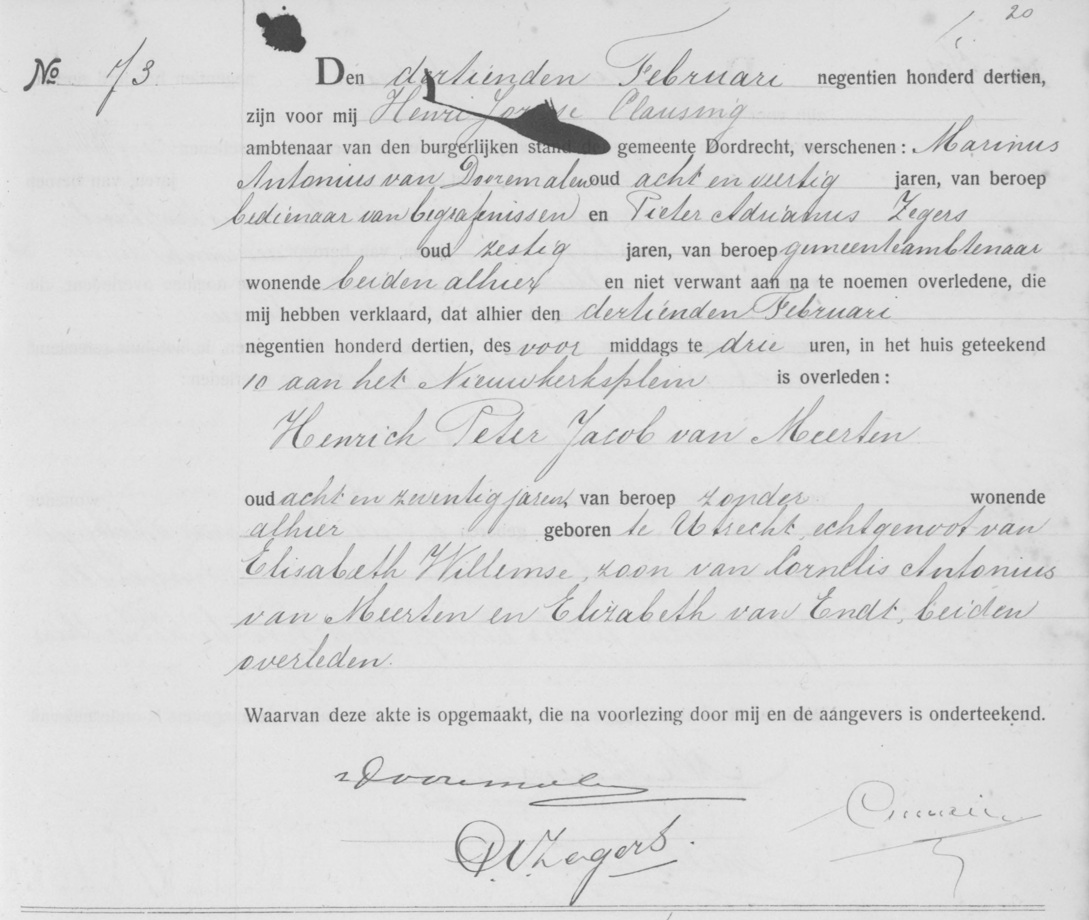 20
No 73 Den dertienden Februari negentien honderd dertien,
zijn voor mij Henri Clausing
ambtenaar van den burgerlijken stand der gemeente Dordrecht, verschenen: Marinus
Antonius van Dooremalen oud acht en veertig jaren, van beroep
bedienaar van begrafenissen en Pieter Adrianus Zegers
oud zestig jaren, van beroep gemeenteambtenaar
wonende beiden alhier en niet verwant aan na te noemen overledene, die
mij hebben verklaard, dat alhier den dertienden Februari
negentien honderd dertien, des voor middags te drie uren, in het huis geteekend
10 aan het Nieuwkerksplein is overleden:
Henrich Peter Jacob van Meerten
oud acht en zeventig jaren, van beroep zonder wonende
alhier geboren te Utrecht, echtgenoot van
Elisabeth Willemse, zoon van Cornelis Antonius
van Meerten en Elizabeth van Endt, beiden
overleden.
Waarvan deze akte is opgemaakt, die na voorlezing door mij en de aangevers is onderteekend.
vDooremalen
Zegers.